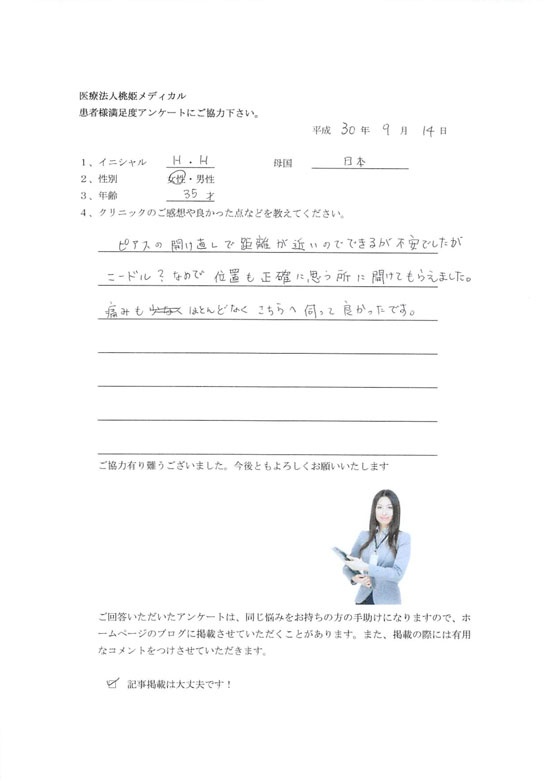 医療法人桃姫メディカル
患者様満足度アンケートにご協力下さい。
平成 30 年 9 月 14 日
1、イニシャル H・H 母国 日本
2、性別 女性・男性
3、年齢 35 才
4、クリニックのご感想や良かった点などを教えてください。
ピアスの開け直しで距離が近いのでできるか不安でしたが
ニードル?なので位置も正確に思う所に開けてもらえました。
痛みも ほとんどなく こちらへ伺って良かったです。
ご協力有り難うございました。今後ともよろしくお願いいたします
ご回答いただいたアンケートは、同じ悩みをお持ちの方の手助けになりますので、ホ
ームページのブログに掲載させていただくことがあります。また、掲載の際には有用
なコメントをつけさせていただきます。
☑ 記事掲載は大丈夫です!